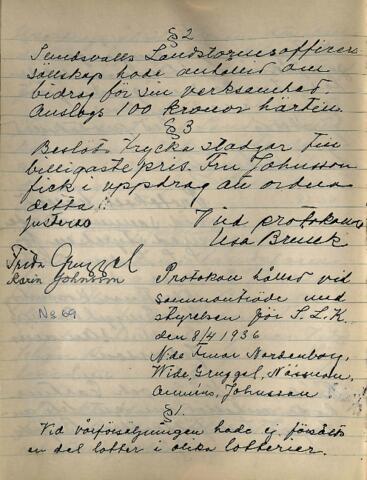 § 2
Sundsvalls Landstormsofficers
sällskap hade anhållit om
bidrag för sin verksamhet.
Anslogs 100 kronor härtill.
§ 3
Beslöts trycka stadgar till
billigaste pris. Fru Johnsson
fick i uppdrag att ordna
detta.
Justeras
Vid protokollet
Lisa Brenck
Frida Gruggel
Karin Johnsson
No 69
Protokoll hållet vid
sammanträde med
styrelsen för S.L.K.
den 8/4 1936
N.do Fruar Nordenborg,
Wide, Gruggel, Näsman,
Johnsson
§ 1.
Vid vårförsäljningen hade ej försålts
en del lotter i olika lotterier.